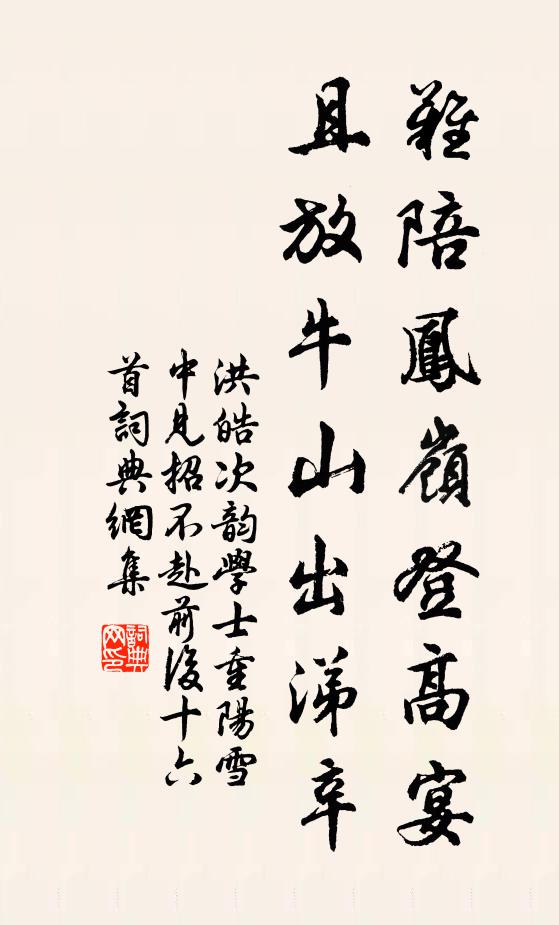 難陪鳳嶺登高宴
且放牛山出涕辛
洪皓次韵學士重陽雪
中見招不赴前後十六
首詞典網集
詞典網印